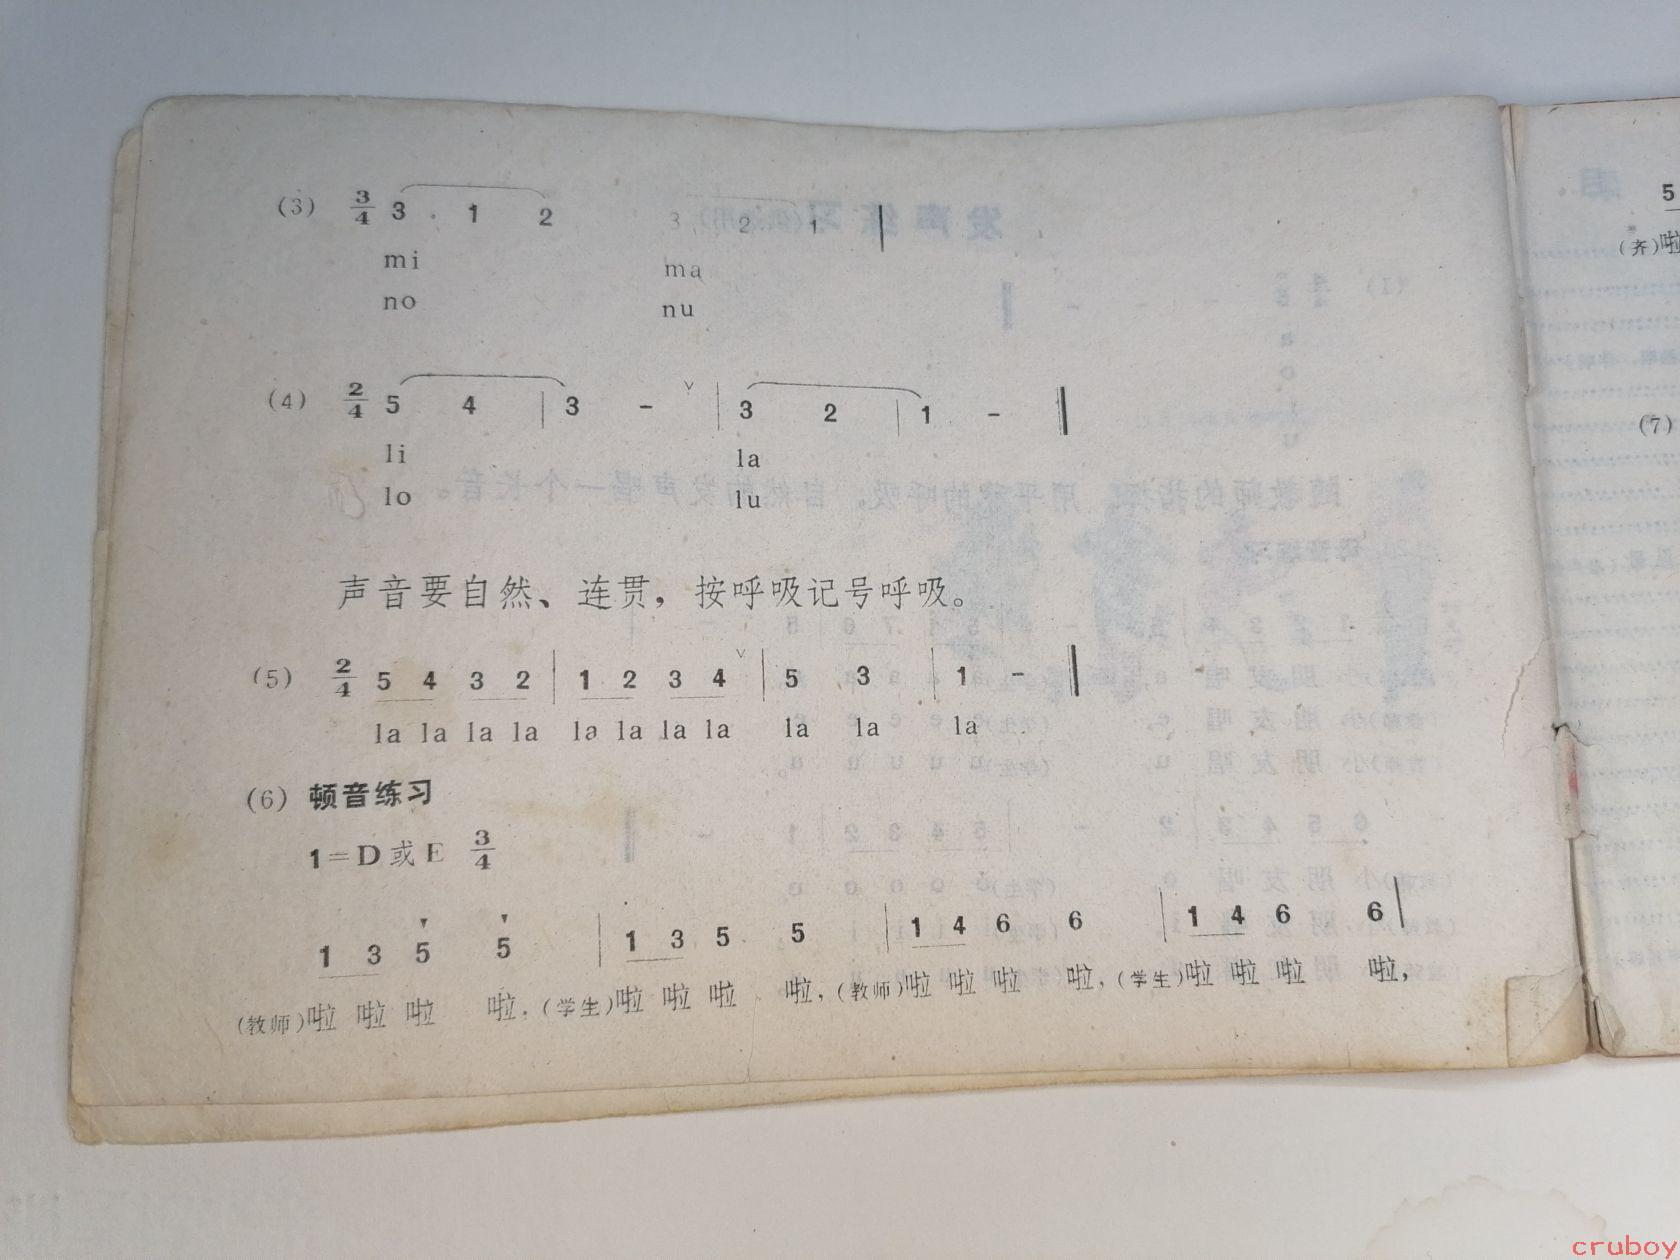 (3) 3/4 3 1 2 3 2 1 |
mi ma
no nu
(4) 2/4 5 4 | 3 - ˅ | 3 2 | 1 - ‖
li la
lo lu
声音要自然、连贯，按呼吸记号呼吸。
(5) 2/4 5 4 3 2 | 1 2 3 4 ˅ | 5 3 | 1 - ‖
la la la la la la la la la la la
(6) 顿音练习
1=D或E 3/4
1 3 5 5 | 1 3 5 5 | 1 4 6 6 | 1 4 6 6 |
(教师)啦 啦 啦 啦，(学生)啦 啦 啦 啦，(教师)啦 啦 啦 啦，(学生)啦 啦 啦 啦，
5
(齐)啦
(7)
cruboy